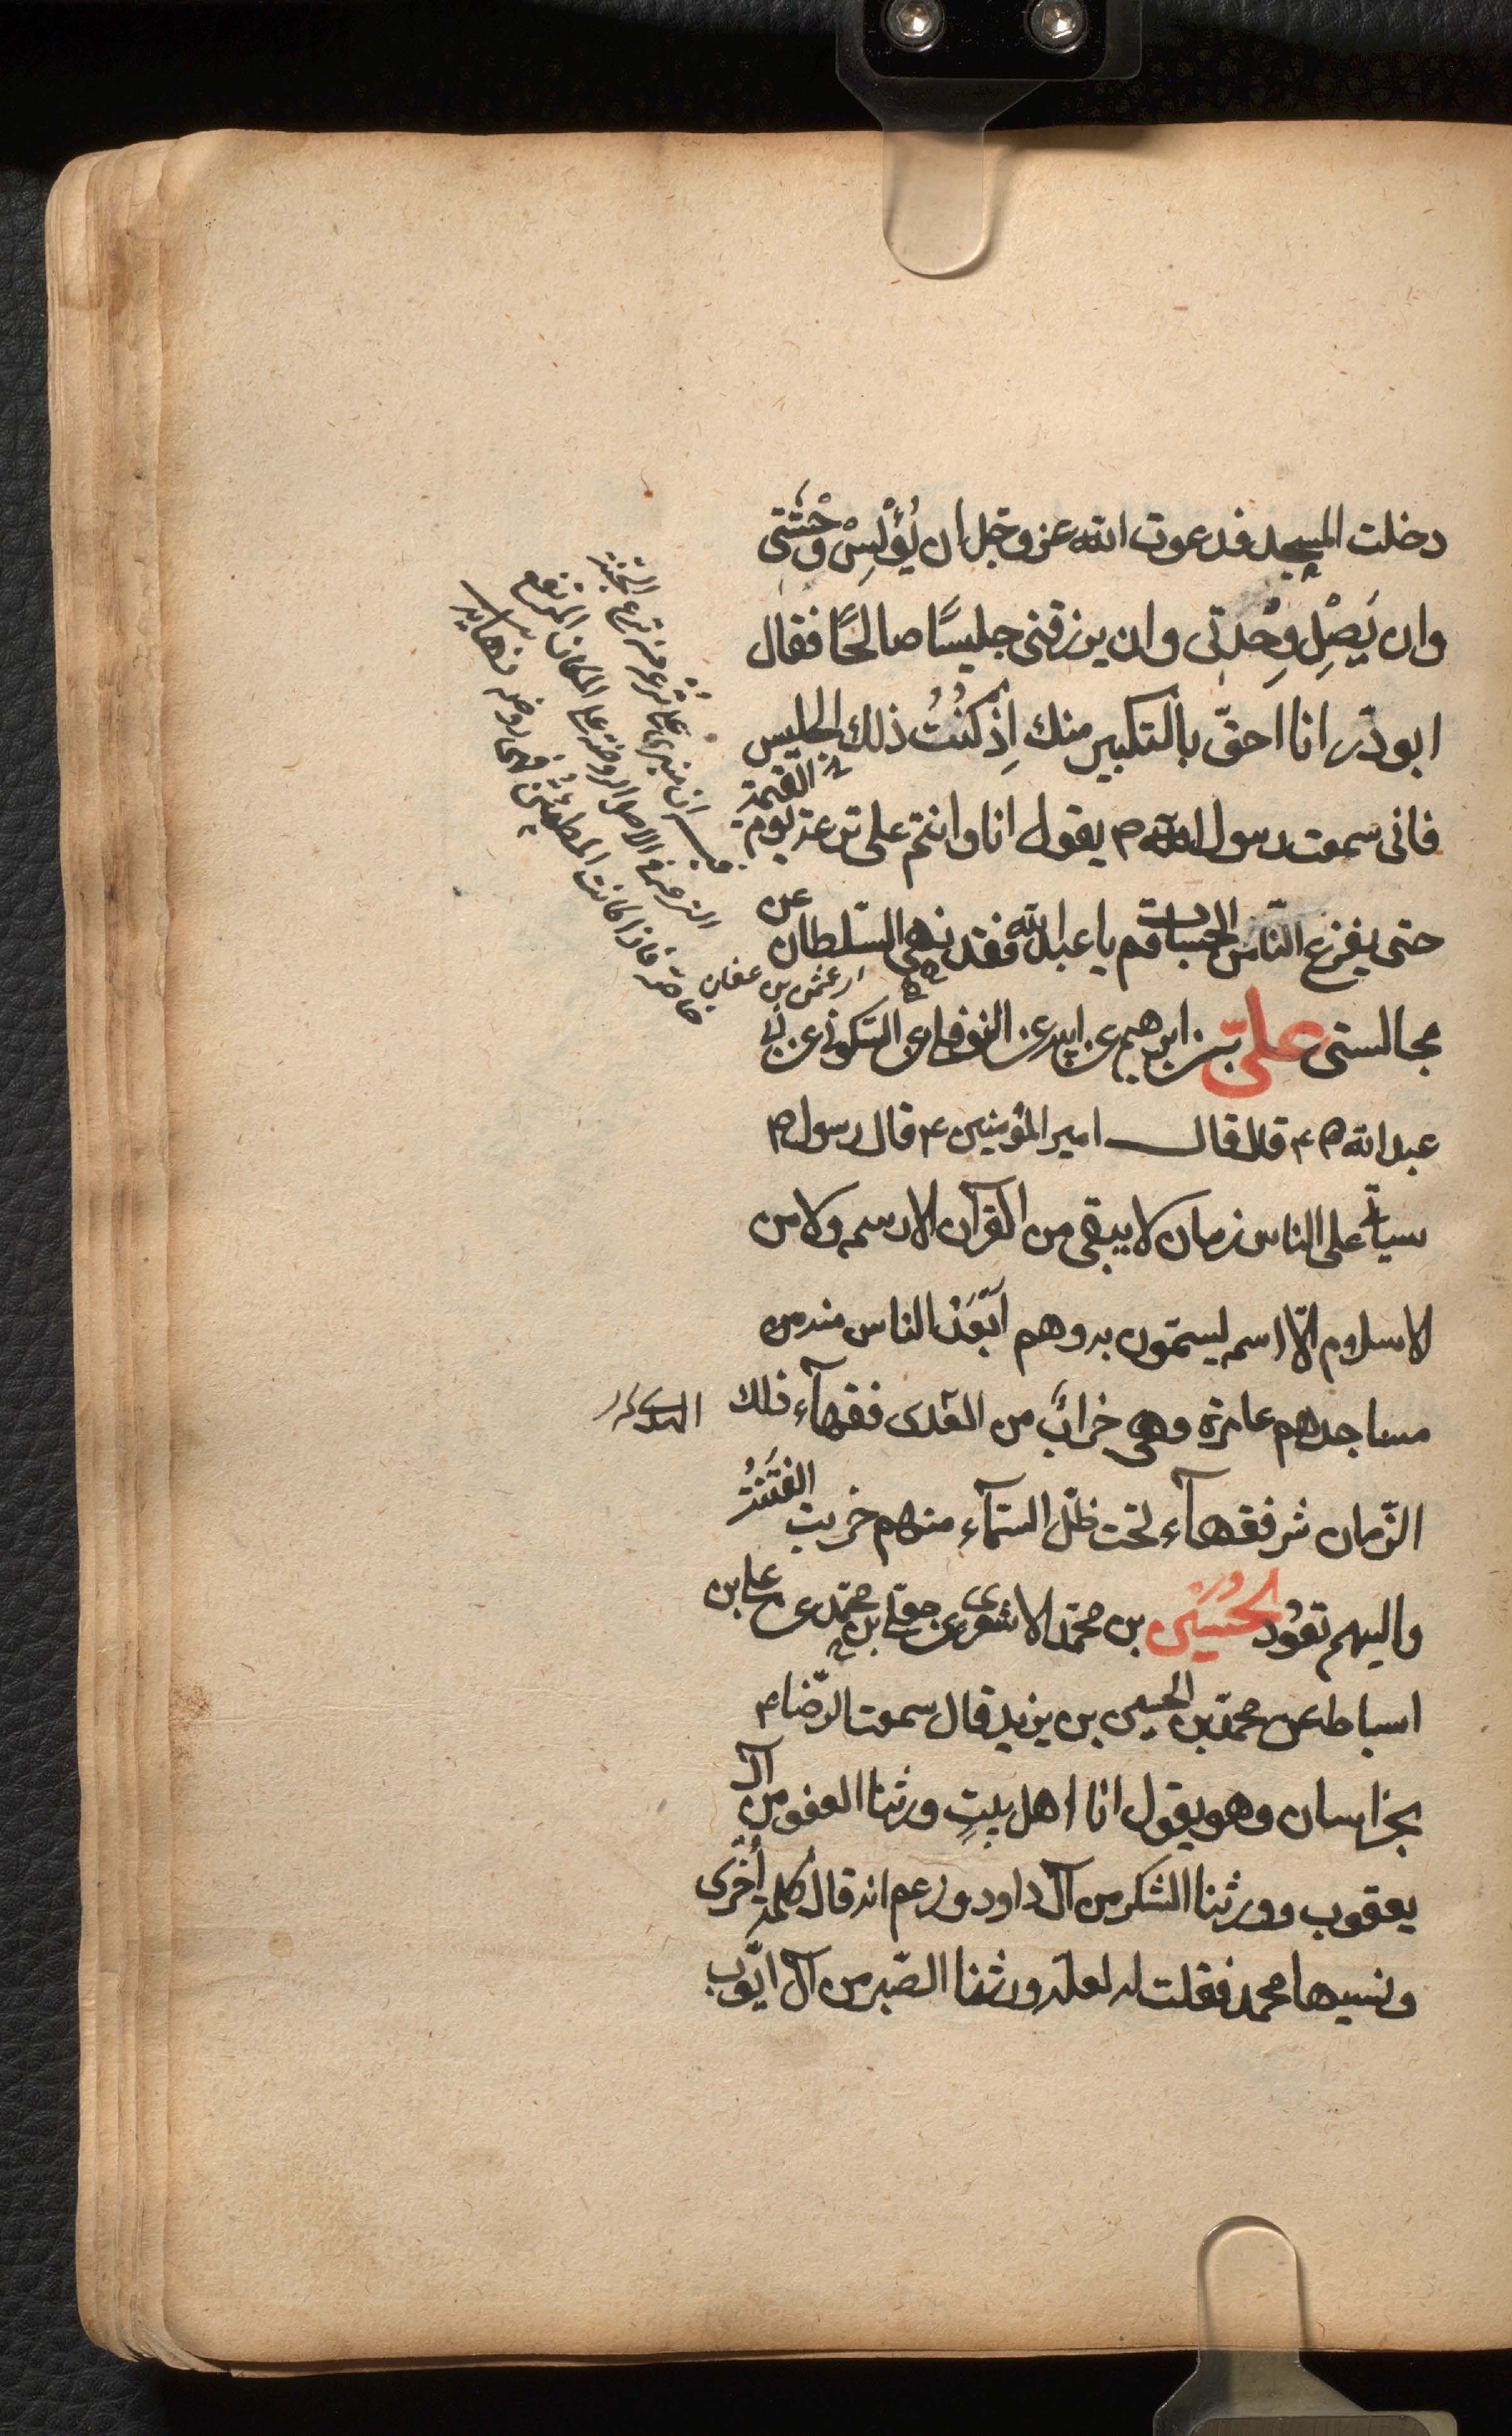 دخلت المسجد فدعوت الله عز وجل ان يُؤْنِسْ وَحْشَتى
وان يَصِلِ وِحْدتى وان يرزقنى جليسًا صالحًا فقال
ابو ذّر انا احقّ بالتكبير منك اِذ كنُتُ ذلك الجليس
فانى سمعت رسول الله ص يقول انا وانتم على ترعة يوم القيمة
حتى يفرغ الناس الحساب قم يا عبد الله فقد نهى السّلطان عن
اى عثمن بن عفان
مجالستى علىّ بن ابرهيم عن ابيه عن النوفلى عن السّكونى عن ابى
عبد الله ع قال قال امير المؤمنين ع قال رسول ص
سيأتى على الناس زمان لا يبقى من القرآن الا رسمه ولا من
الاسلام الّا اسمه يسمّون به وهم اَبْعَدُ الناس منه من
مساجدهم عامرة وهى خرابٌ من الهدى فقهآء ذلك
الزّمان شر فقهآء تحت ظلّ السّمآء منهم خرجت الفِتْنَةُ
واليهم تعوُد الحُسين بن محمّد الاشعرى عن معلى بن محمّد عن على بن
اسباط عن محمّد بن الحسين بن يزيد قال سمعت الرّضا ع
بخراسان وهو يقول انا اهل بيتٍ ورثنا العفو من آل
يعقوب وورثنا الشكر من آل داود وزعم انه قال كلمة اُخْرى
ونسيها محمد فقلت له لعلّه ورثنا الصّبر من آل ايّوب